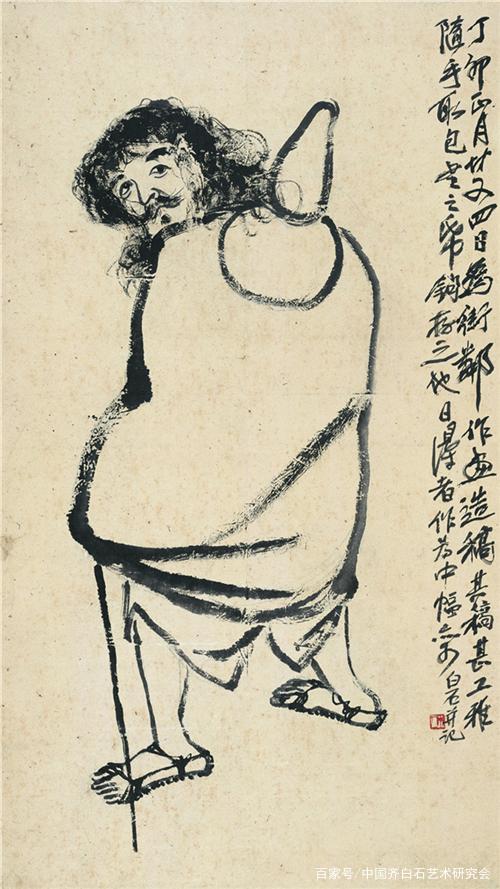 丁卯正月廿又四日爲街鄰作畫造稿其稿甚工雅
隨手取包書之紙鉤存之他日得者作爲中幅亦可 白石并記
百家号/中国齐白石艺术研究会